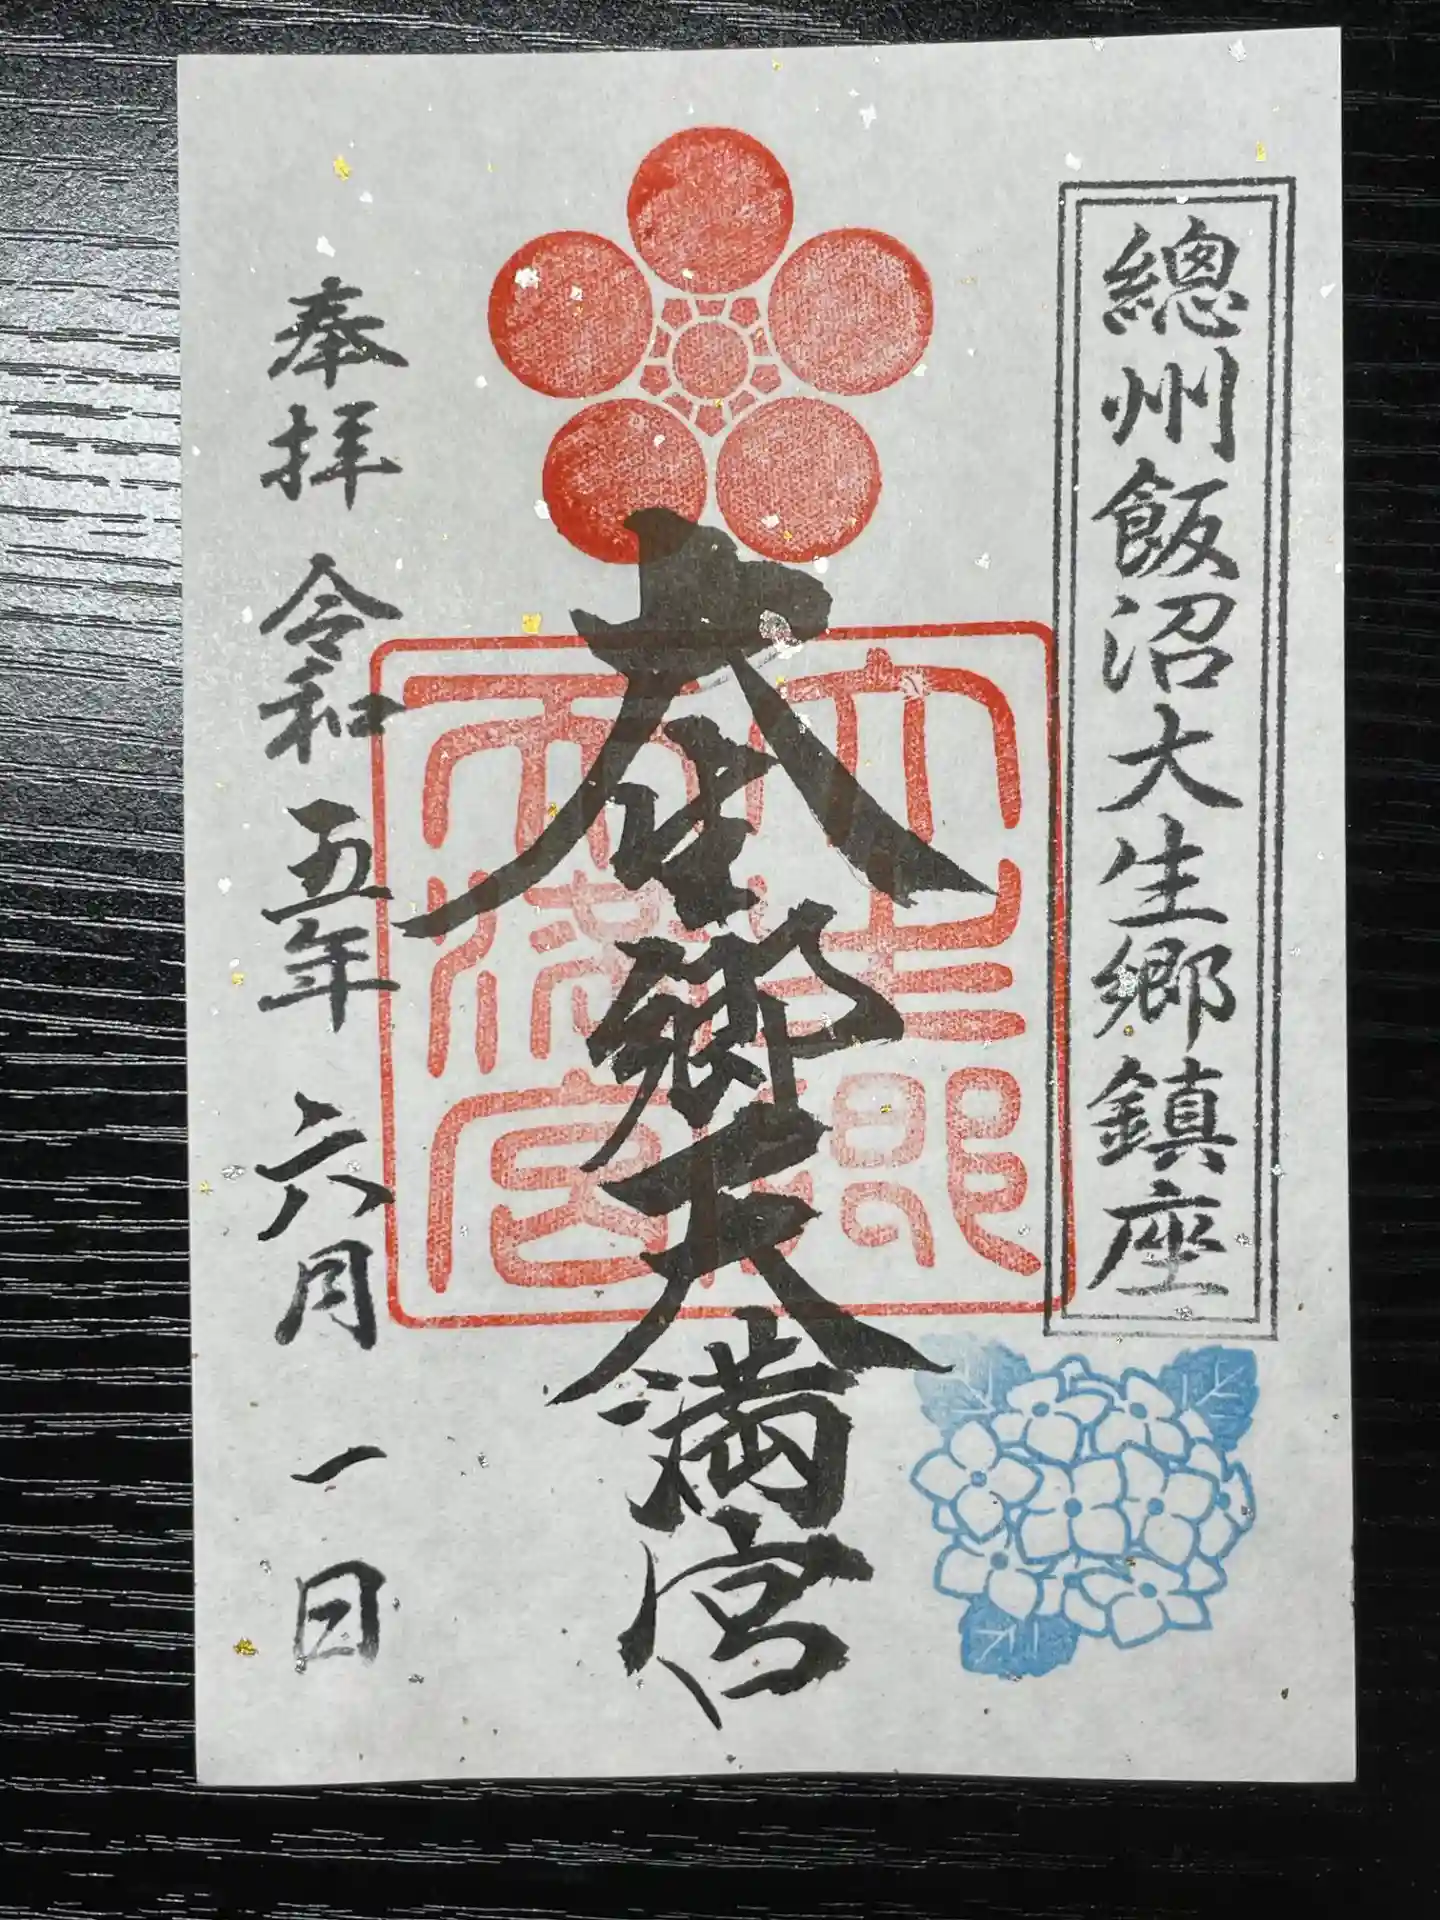 總州飯沼大生郷鎮座
大生郷天満宮
大生郷
天満宮
奉拝 令和五年 六月 一日